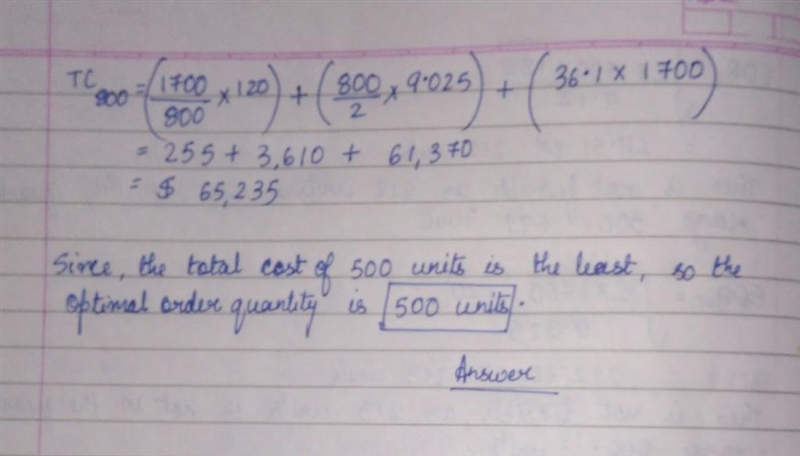 TC₈₀₀ = (1700/800 × 120) + (800/2 × 9.025) + (36.1 × 1700)
= 255 + 3,610 + 61,370
= $ 65,235
Since, the total cost of 500 units is the least, so the
optimal order quantity is 500 units.
Answer